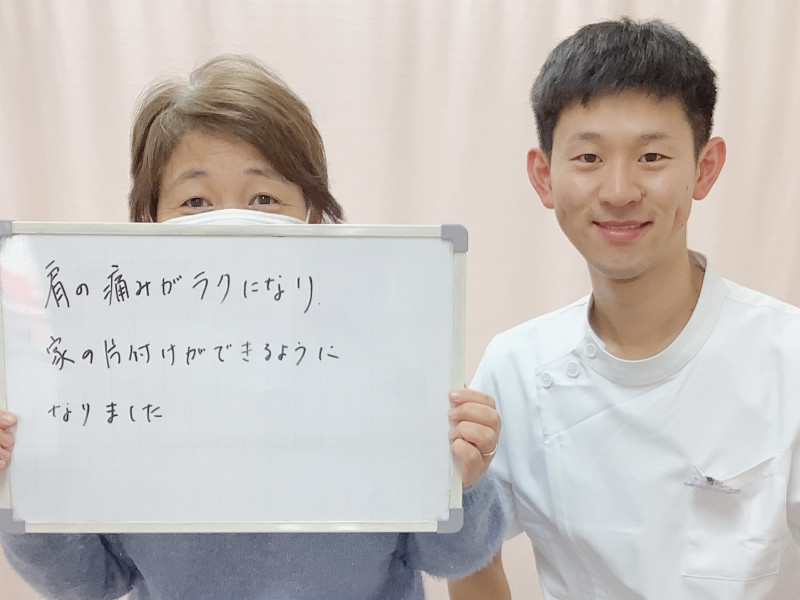 肩の痛みがラクになり、
家の片付けができるように
なりました